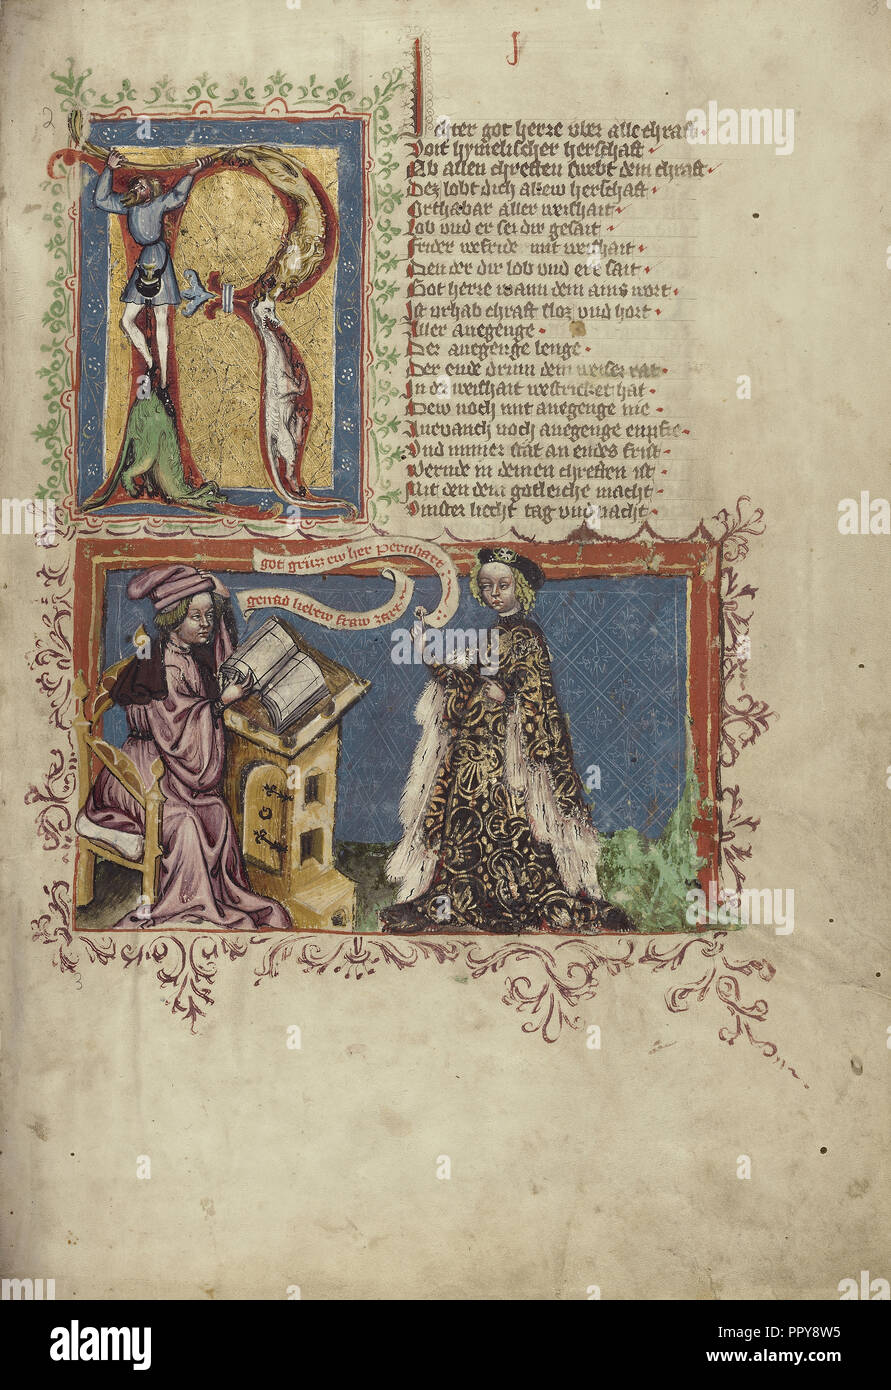 J
2
3
Ichter got herre vber alle chraft
Voit hymelischer herschaft
Ob allen chreften swebt dein chraft
Dez lobt dich allew herschaft
Orthabar aller weishait
Lob vnd er sei dir gesait
Frider wefride mit weishait
Den der dir lob vnd ere sait
Got herre wann dein ains wort
Ist vrhab chraft sloz vnd hort
Aller anegenge
Der anegenge lenge
Der ende drum dein weiser rat
In der weishait westricket hat
Dew noch mit anegenge nie
Anevanch noch anegenge enpfie
Vnd immer stat an endes frist
Wernde in deinen chreften ist
Mit den dein gotleiche macht
Vinster liecht tag vnd nacht
got grüzz ew her Pernhart
genad liebew fraw zart
alamy
Image ID: PPY8W5
www.alamy.com